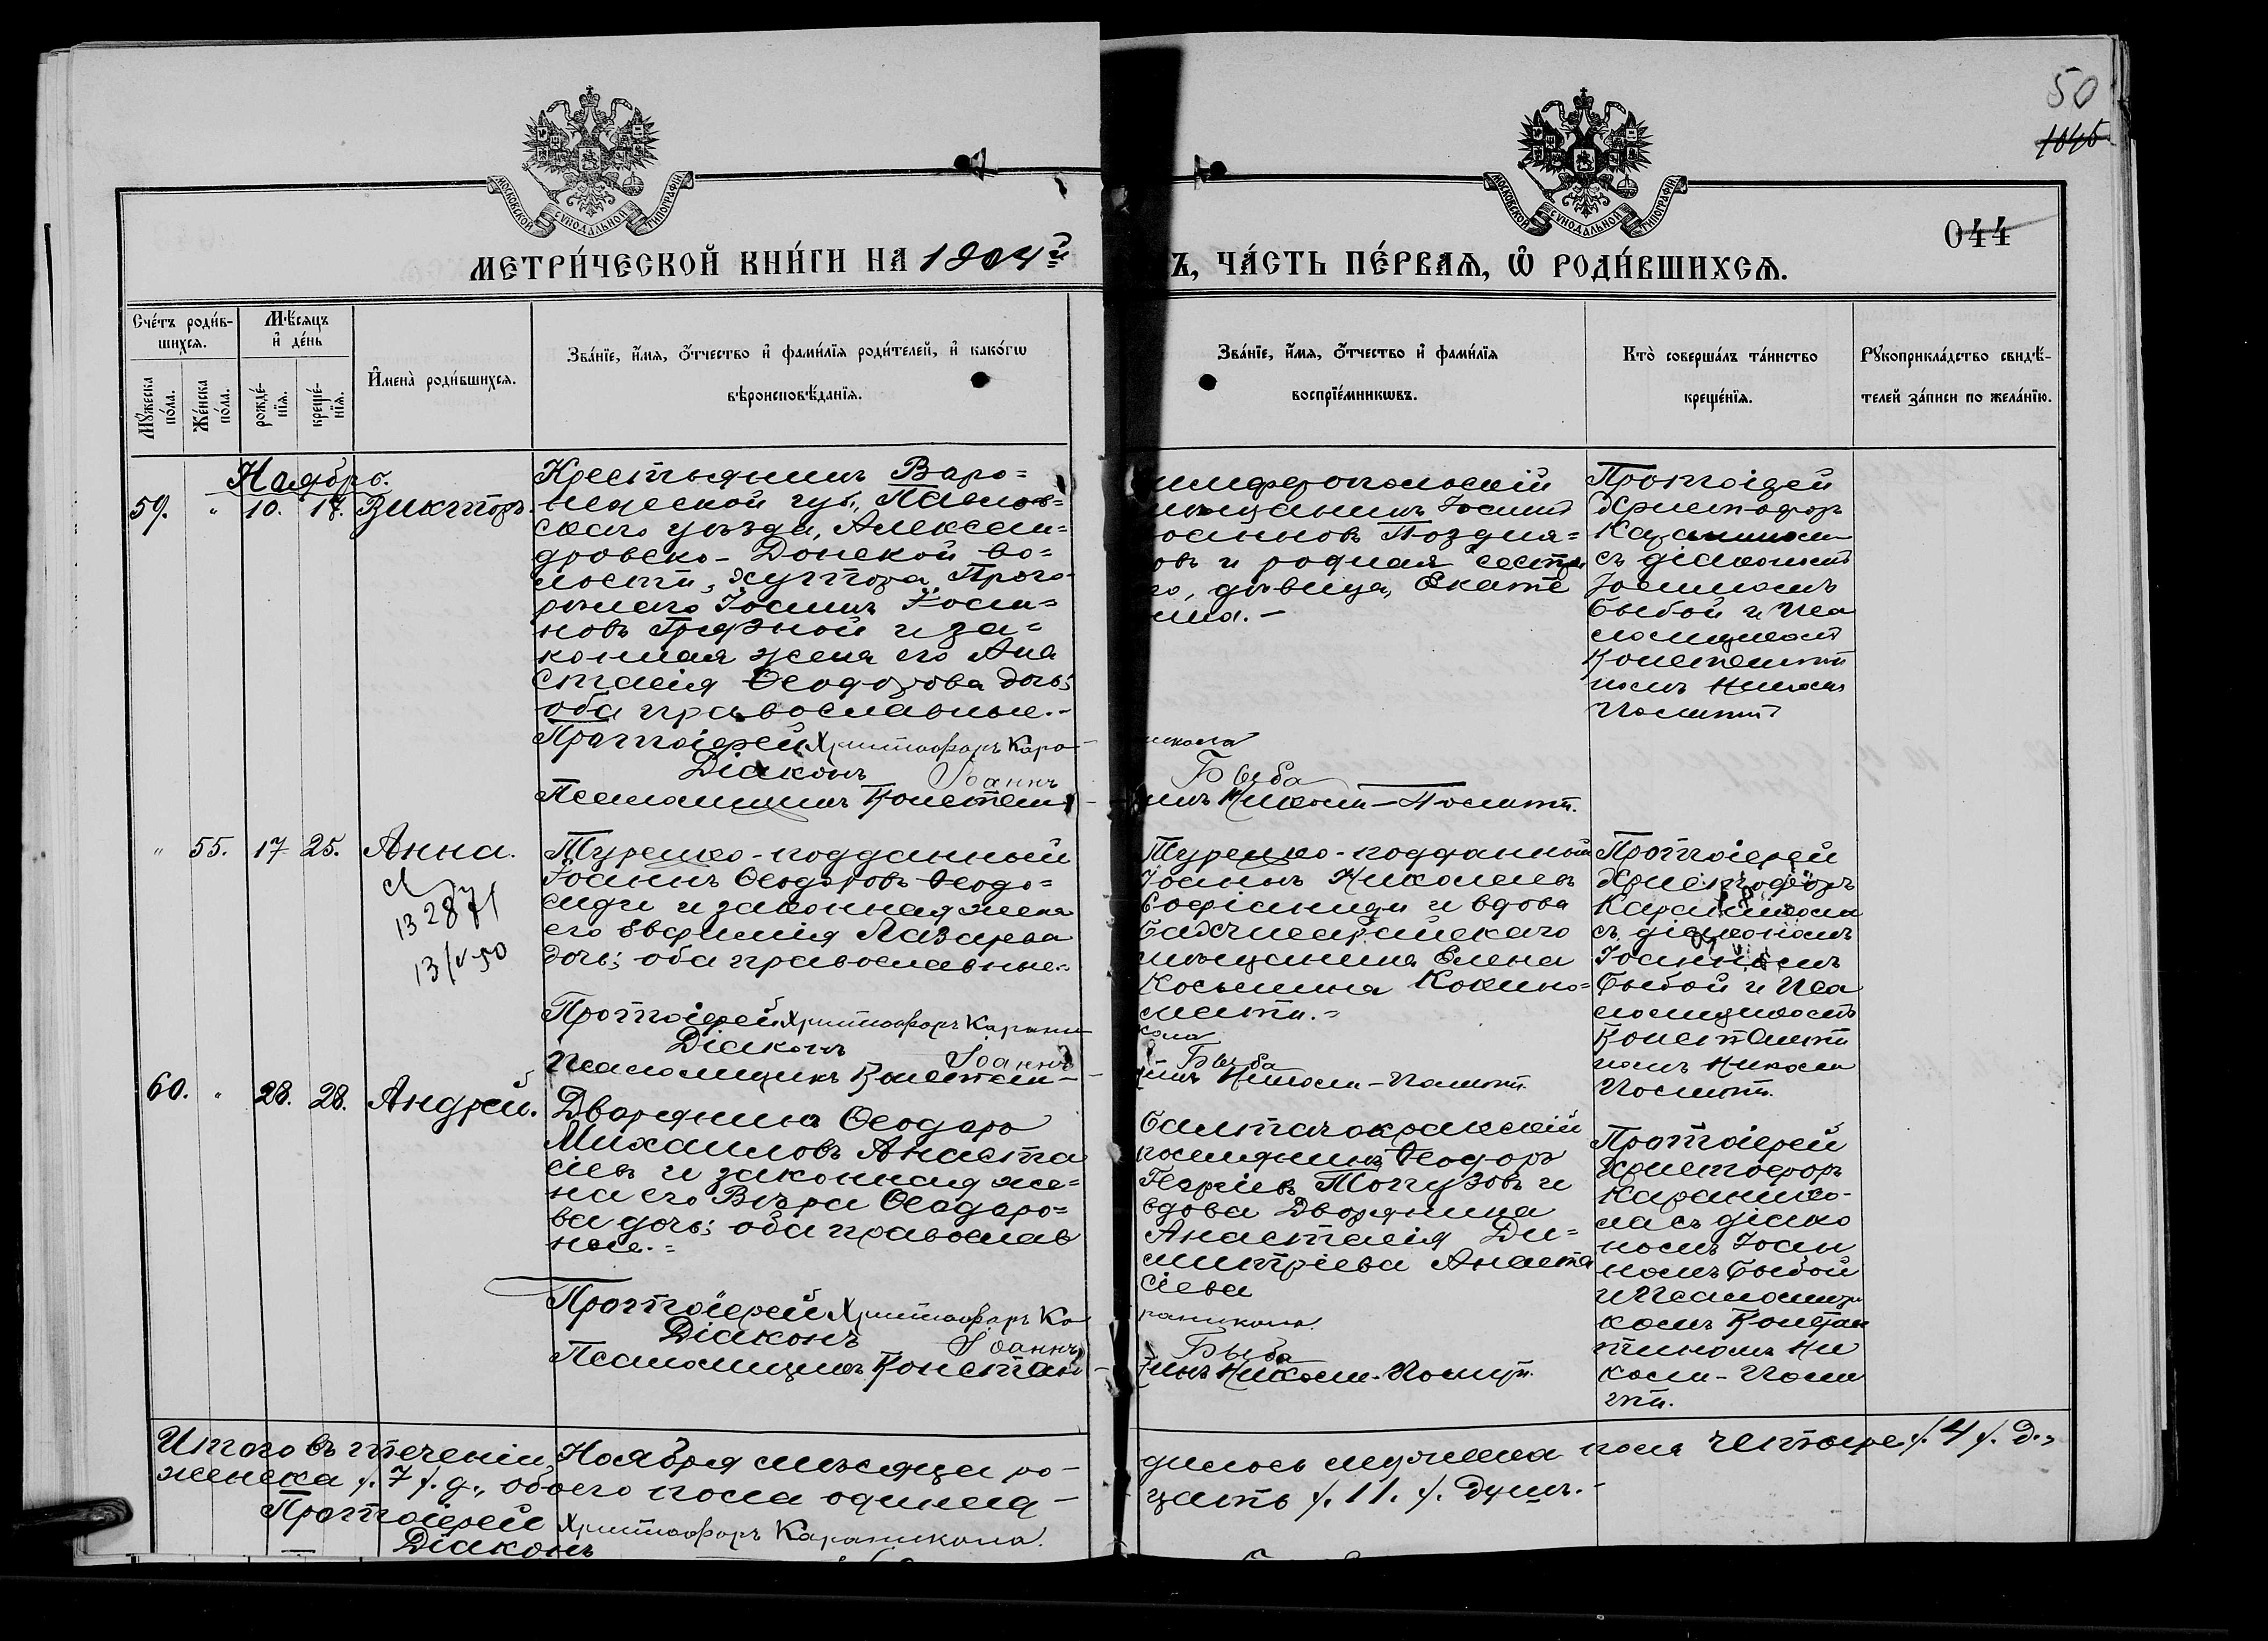 50
1045
044
МОСКОВСКОЙ СѴНОДАЛЬНОЙ ТИПОГРАФІИ
МОСКОВСКОЙ СѴНОДАЛЬНОЙ ТИПОГРАФІИ
МЕТРИ́ЧЕСКОЙ КНИ́ГИ НА 1904й
Ъ, ЧА́СТЬ ПЕ́РВАѦ, Ѡ҆ РОДИ́ВШИХСѦ.
Сче́тъ роди́в-
шихсѧ.
Мꙋ́жеска по́ла.
Же́нска по́ла.
Мѣ́сѧцъ
и҆ де́нь
рожде́-
нїѧ.
креще́-
нїѧ.
И҆мена̀ роди́вшихсѧ.
Зва́нїе, и҆́мѧ, ѻ҆́тчество и҆ фами́лїѧ роди́телей, и҆ како́гѡ
вѣроисповѣ́данїѧ.
Зва́нїе, и҆́мѧ, ѻ҆́тчество и҆ фами́лїѧ
воспрїе́мникѡвъ.
Кто̀ соверша́лъ та́инство
креще́нїѧ.
Рꙋкоприкла́дство свидѣ́-
телей за́писи по жела́нїю.
Ноябрь.
59. " 10. 17. Викторъ.
Крестьянинъ Воро=
нежской губ., Павлов=
скаго уѣзда, Алексан=
дровско-Донской во=
лости, хутора
Іоаннъ Іоан=
новъ Грязной и за=
конная жена его Ана
стасія Ѳеодорова дочь;
оба православные.-
Протоіерей Христофоръ Кара-
Діаконъ Іоаннъ
Псаломщикъ Констан-
имферопольскій
мѣщанинъ
оанновъ Поздня=
овъ и родная сестра
го, дѣвица, Екате
ина.-
никола
Быба
инъ Никола-Полити.
Протоіерей
Христофоръ
Караникола
съ діакономъ
Іоанномъ
Быбой и Пса
ломщикомъ
Константи
номъ Никола
Полити
" 55. 17 25. Анна.
13 2871
13/V 50
Турецко-подданный
Іоаннъ Ѳеодоровъ Ѳеодо=
сиди и законная жена
его Евѳимія Лазарева
дочь; оба православные.-
Протоіерей Христофоръ Карани
Діаконъ Іоаннъ
Псаломщикъ Констан-
Турецко-подданный
Іоаннъ Николаевъ
Софіаниди и вдова
Бахчисарайскаго
мѣщанина Елена
Косьмина Кокино=
мети.=
кола
Быба
инъ Никола-Полити.
Протоіерей
Христофоръ
Караникола
съ діакономъ
Іоанномъ
Быбой и Пса
ломщикомъ
Константи
номъ Никола
Полити.
60. " 28. 28. Андрей.
Дворянинъ Ѳеодоръ
Михаиловъ Анаста
сіевъ и законная же=
на его Вѣра Ѳеодоро=
ва дочь; оба православ
ные.=
Протоіерей Христофоръ Ка
Діаконъ Іоаннъ
Псаломщикъ Констан-
Балтачокракскій
поселянинъ Ѳеодоръ
Георгіевъ Тохтузовъ и
вдова Дворянина
Анастасія Ди=
митріева Анаста
сіева
раникола.
Быба
тинъ Никола-Полити.
Протоіерей
Христофоръ
Каранико-
ла съ діако
номъ Іоан
номъ Быбой
и Псаломщи
комъ Констан
тиномъ Ни
кола-Поли
ти.
Итого въ теченіи Ноября мѣсяца ро-
дилось мужеска пола четыре /. 4 /. д.,
женска /. 7 /. д., обоего пола одинад-
цать /. 11. /. душъ.-
Протоіерей Христофоръ Караникола.
Діаконъ